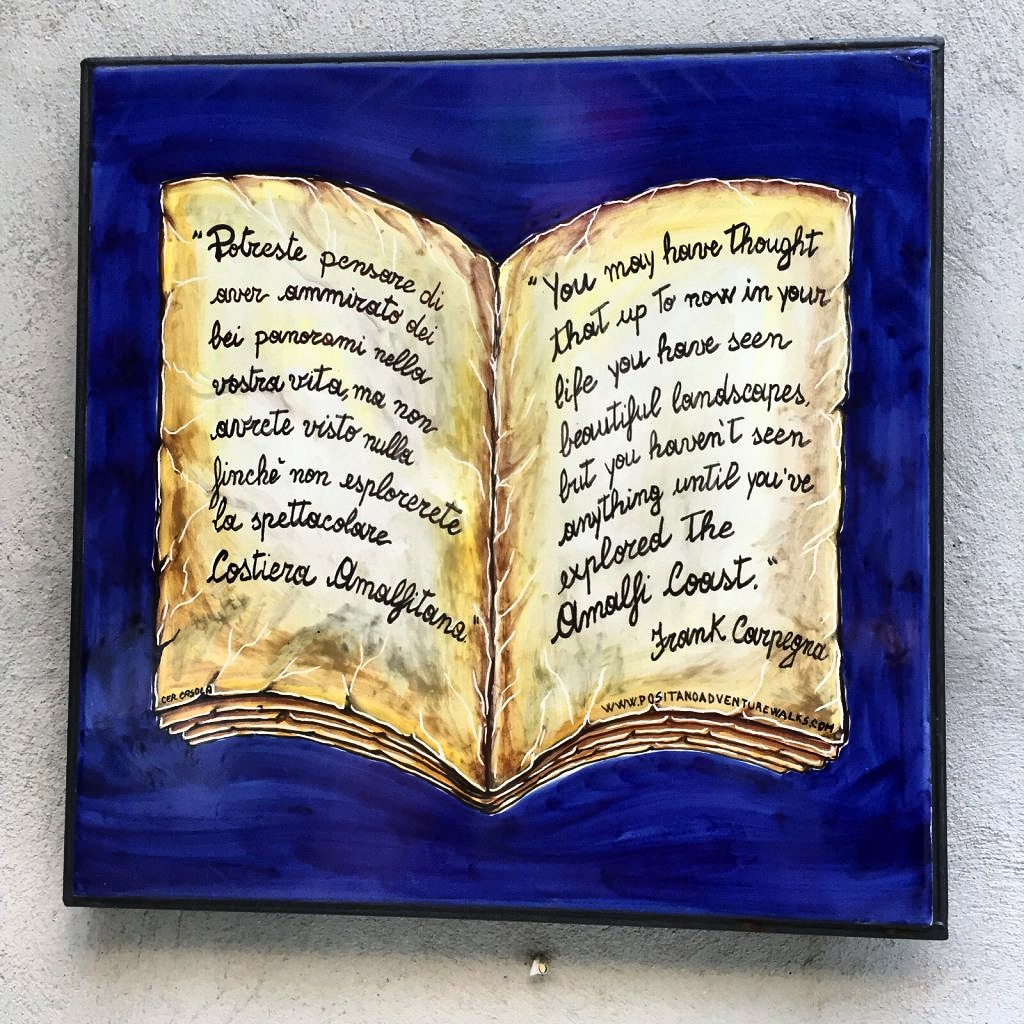 "Potreste pensare di
aver ammirato dei
bei panorami nella
vostra vita, ma non
avrete visto nulla
finchè non esplorerete
la spettacolare
Costiera Amalfitana"
CER. CASOLA
"You may have thought
that up to now in your
life you have seen
beautiful landscapes,
but you haven't seen
anything until you've
explored the
Amalfi Coast."
Frank Carpegna
WWW.POSITANOADVENTUREWALKS.COM